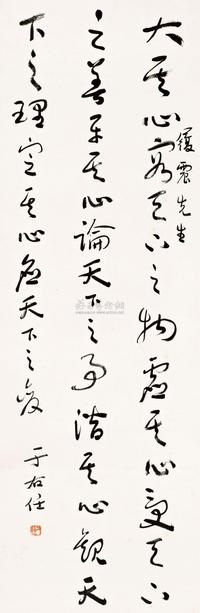 震先生
大其心容天下之物虛其心受天下
之善平其心論天下之事潛其心觀天
下之理定其心應天下之變
于右任